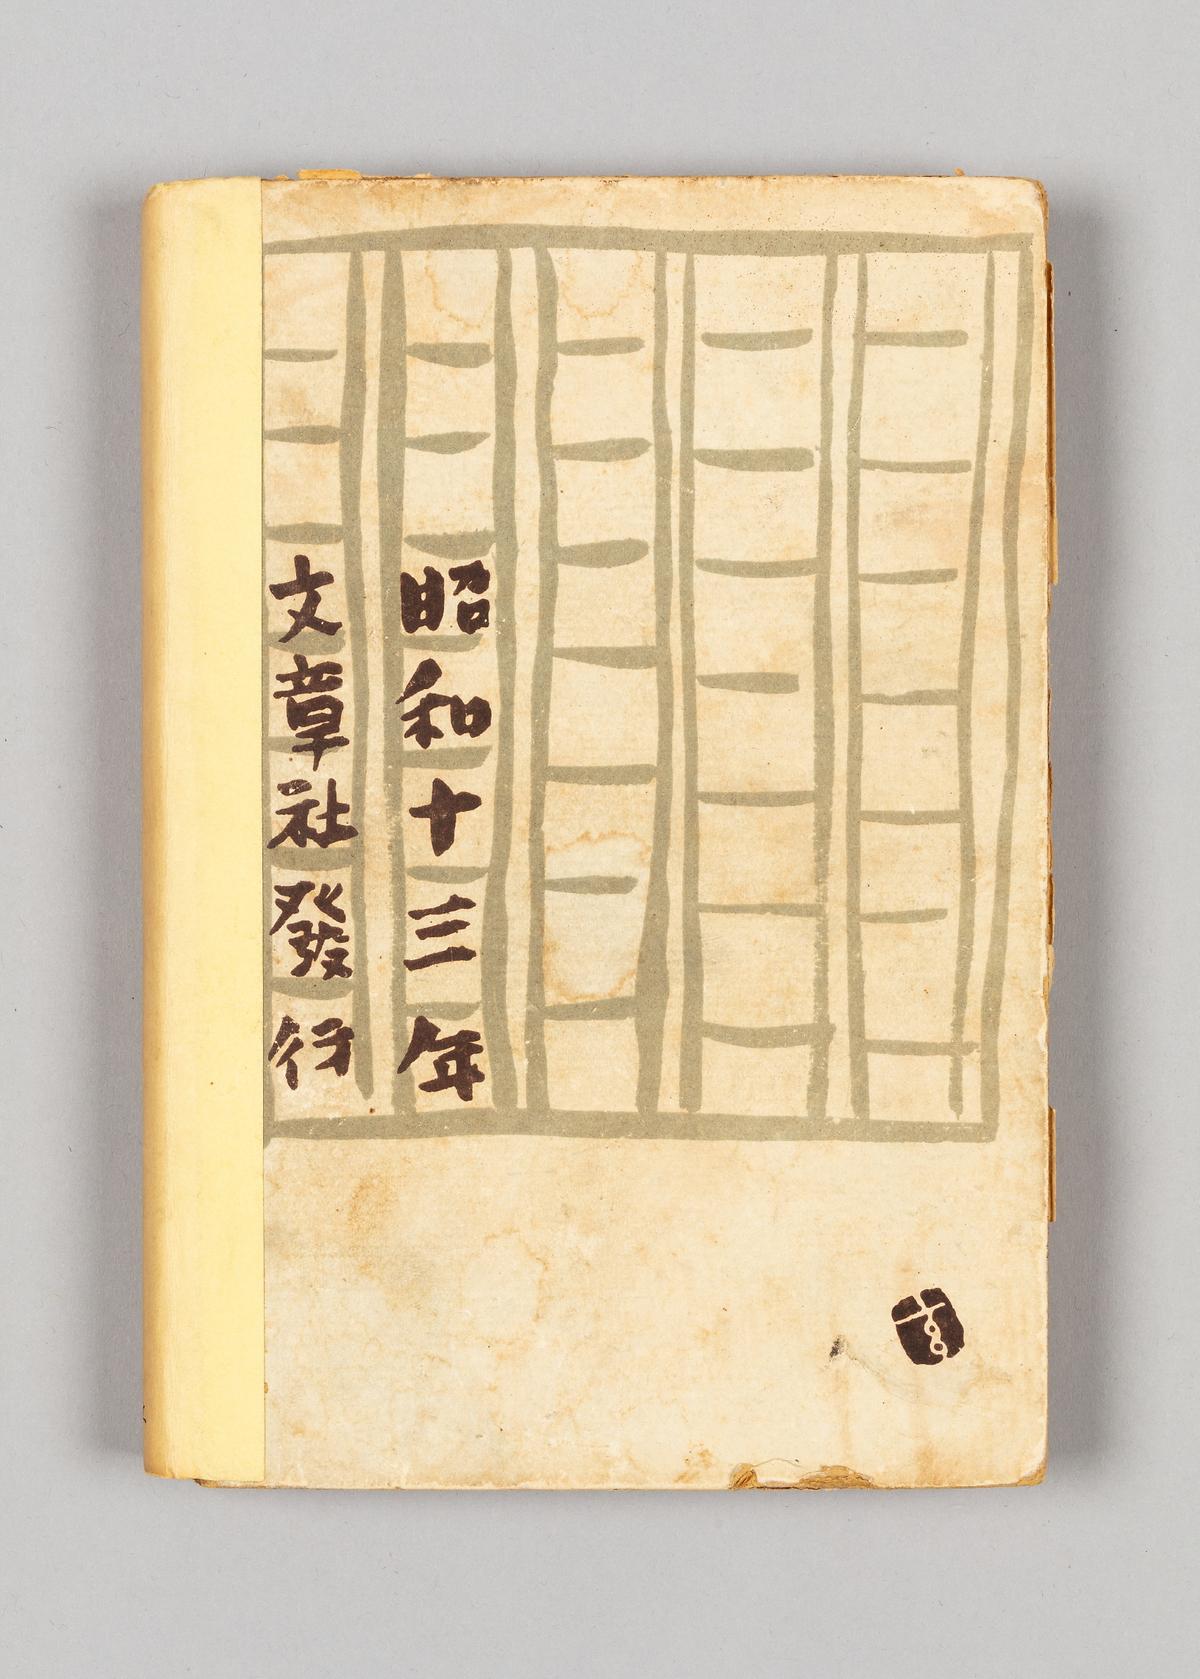 昭和十三年
文章社發行